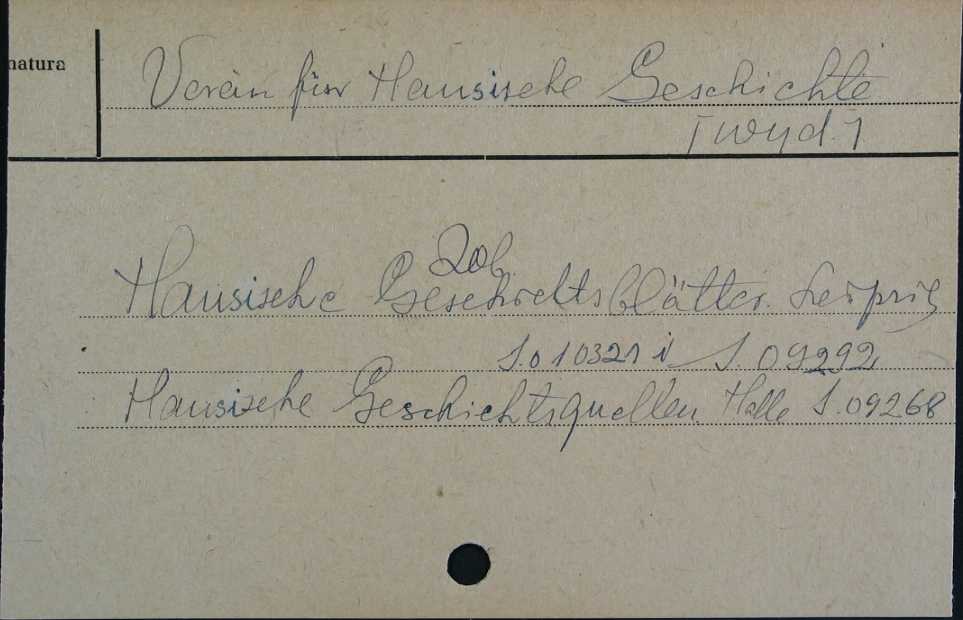 natura
Verein für Hansische Geschichte
[wyd.]
Zob.
Hansische Geschichtsblätter. Leipzig
S.010321 i S.09292
Hansische Geschichtsquellen Halle S.09268